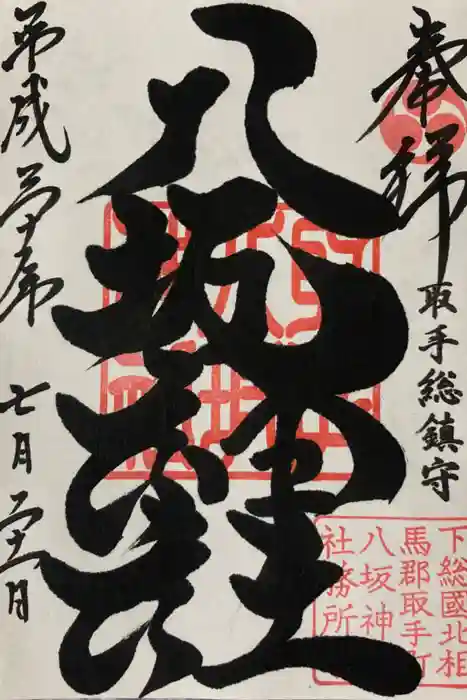 奉拝
取手総鎮守
八坂神社
平成三十年
七月
下総國北相
馬郡取手町
八坂神
社務所